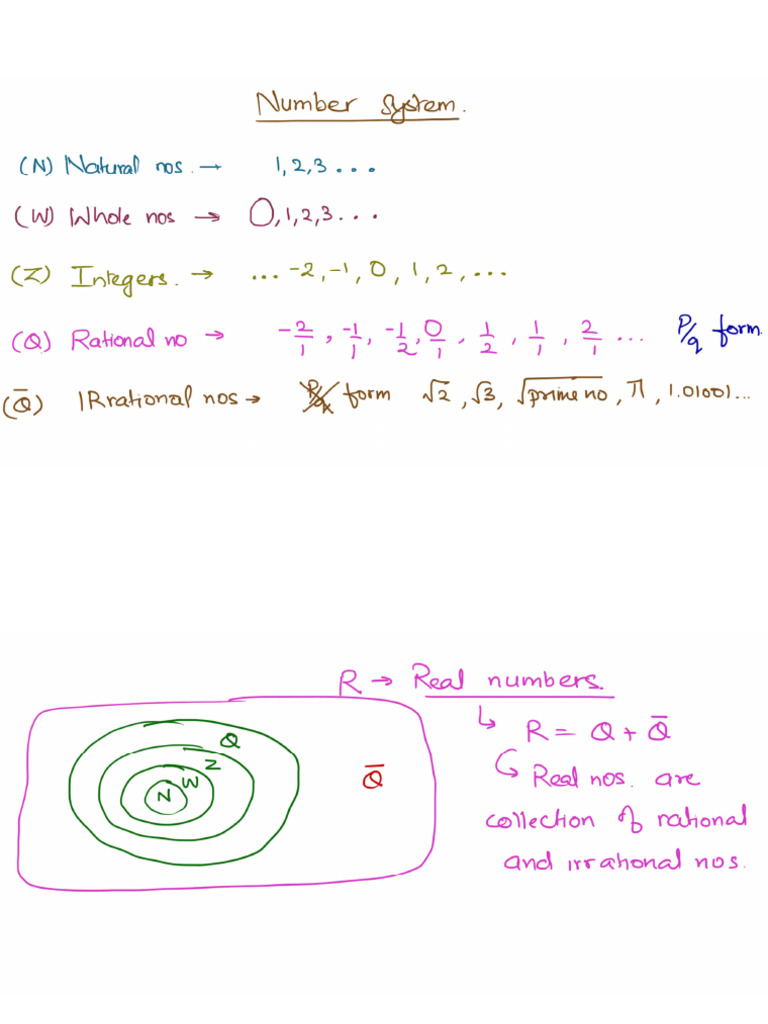 Number System.
(N) Natural nos. → 1, 2, 3 ...
(W) Whole nos → 0, 1, 2, 3 ...
(Z) Integers. → ... -2, -1, 0, 1, 2, ...
(Q) Rational no → -2/1, -1/1, -1/2, 0/1, 1/2, 1/1, 2/1 ... P/q form.
(Q̄) IRrational nos → P/q form √2, √3, √prime no, π, 1.01001...
R → Real numbers.
↳ R = Q + Q̄
Real nos. are
collection of rational
and irrational nos.
Q
Z
W
N
Q̄